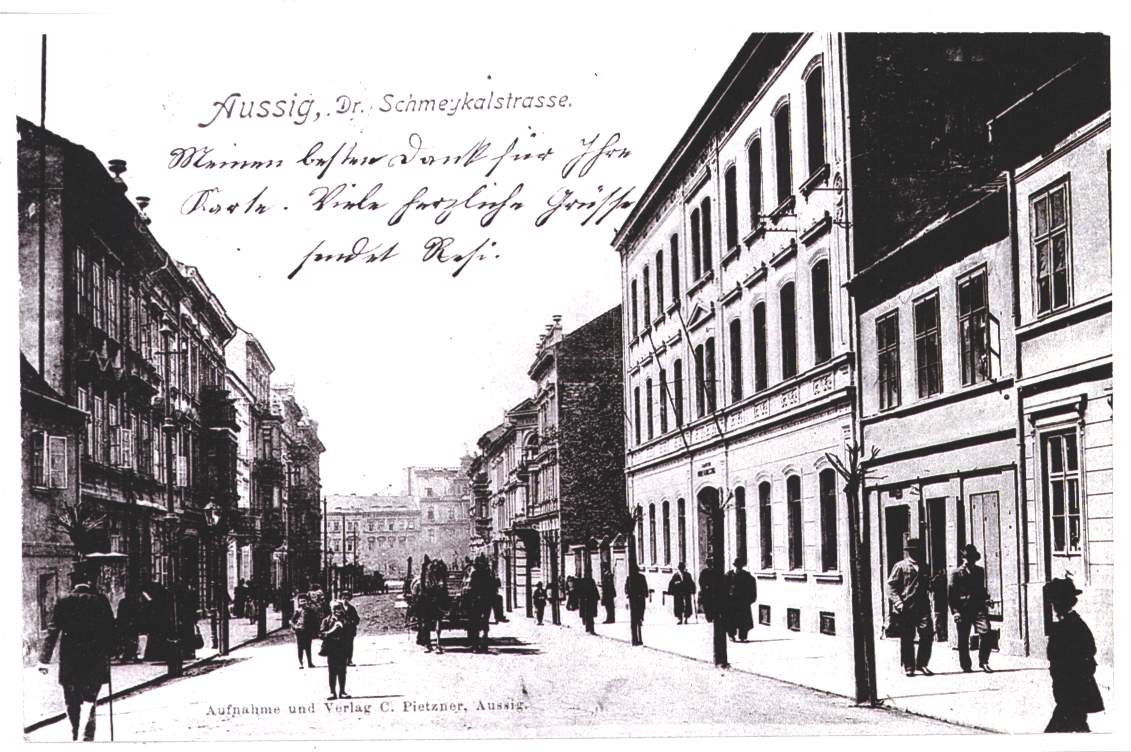 Aussig, Dr. Schmeykalstrasse.
Meinen besten Dank für Ihre
Karte. Viele herzliche Grüsse
sendet Resi.
Aufnahme und Verlag C. Pietzner, Aussig.